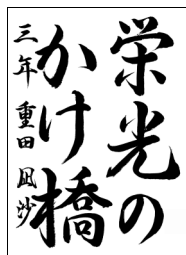 栄光の
かけ橋
三年 重田 凪沙